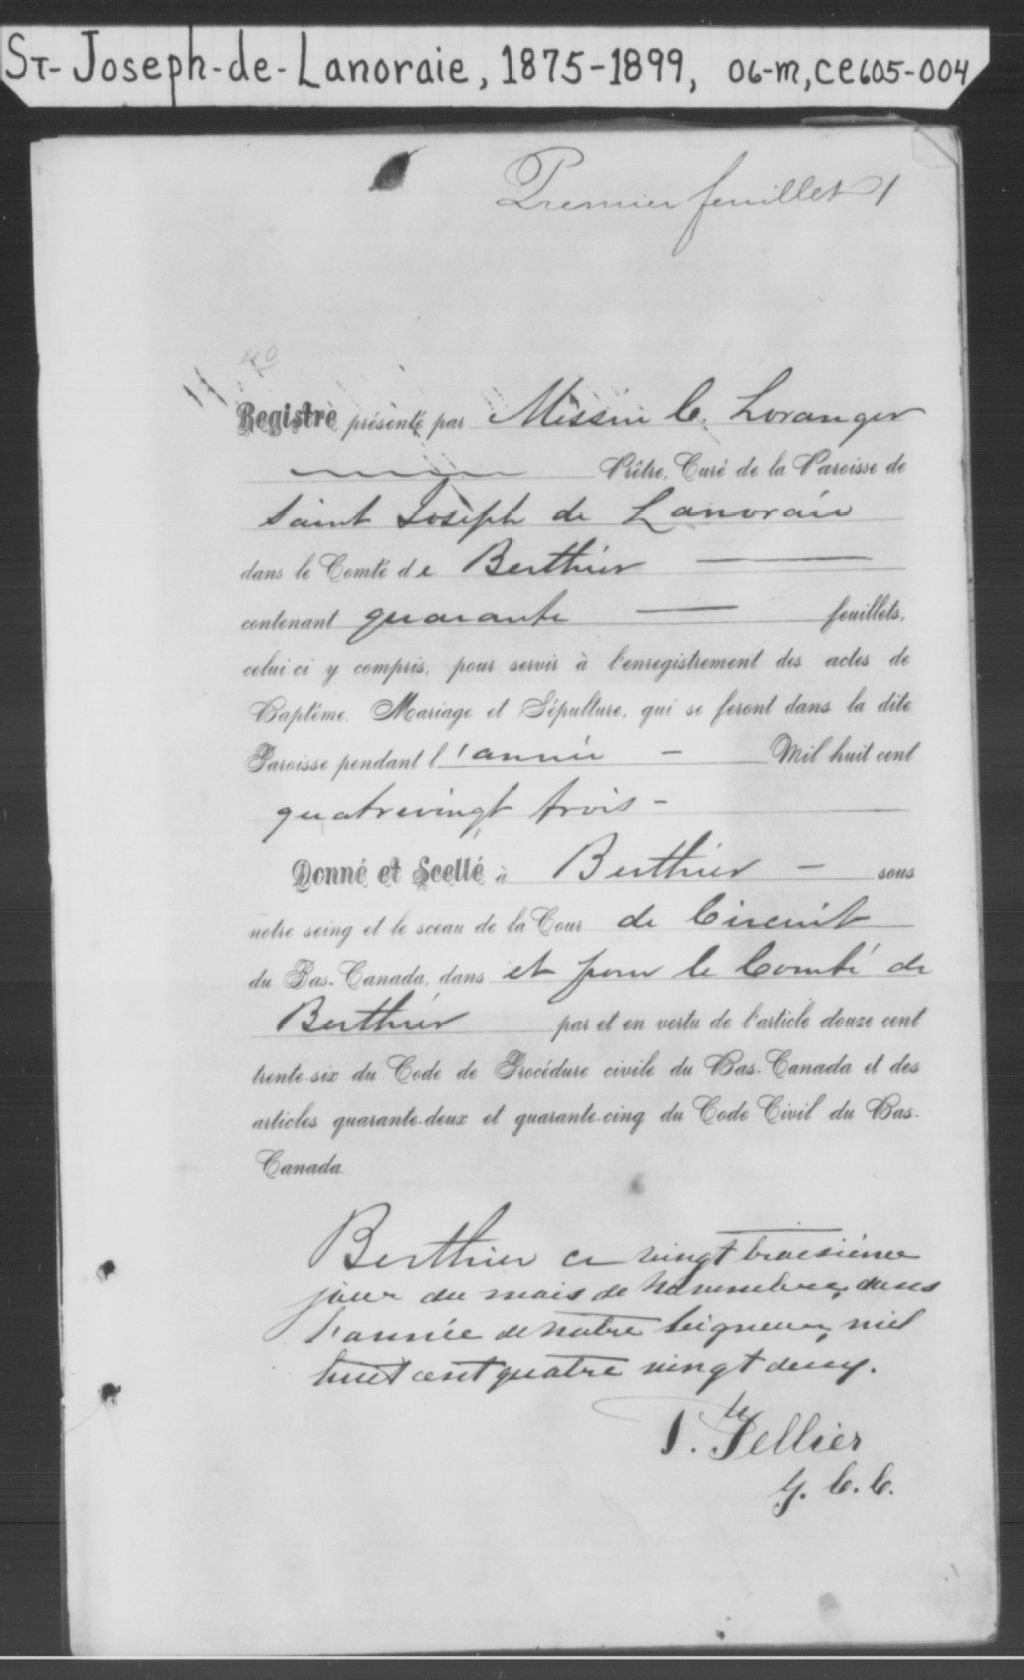 St-Joseph-de-Lanoraie, 1875-1899, 06-m, ce605-004
Premier feuillet 1
40
Registre présenté par Messire C. Loranger
Prêtre, Curé de la Paroisse de
Saint Joseph de Lanoraie
dans le Comté de Berthier
contenant quarante feuillets,
celui-ci y compris, pour servir à l'enregistrement des actes de
Baptême, Mariage et Sépulture, qui se feront dans la dite
Paroisse pendant l'année - Mil huit cent
quatrevingt trois -
Donné et Scellé à Berthier - sous
notre seing et le sceau de la Cour de Circuit
du Bas-Canada, dans et pour le Comté de
Berthier par et en vertu de l'article douze cent
trente-six du Code de Procédure civile du Bas-Canada et des
articles quarante-deux et quarante-cinq du Code Civil du Bas-
Canada.
Berthier ce vingt troisième
jour du mois de Novembre, dans
l'année de notre Seigneur, mil
huit cent quatre vingt deux.
Tellier
G. C. C.